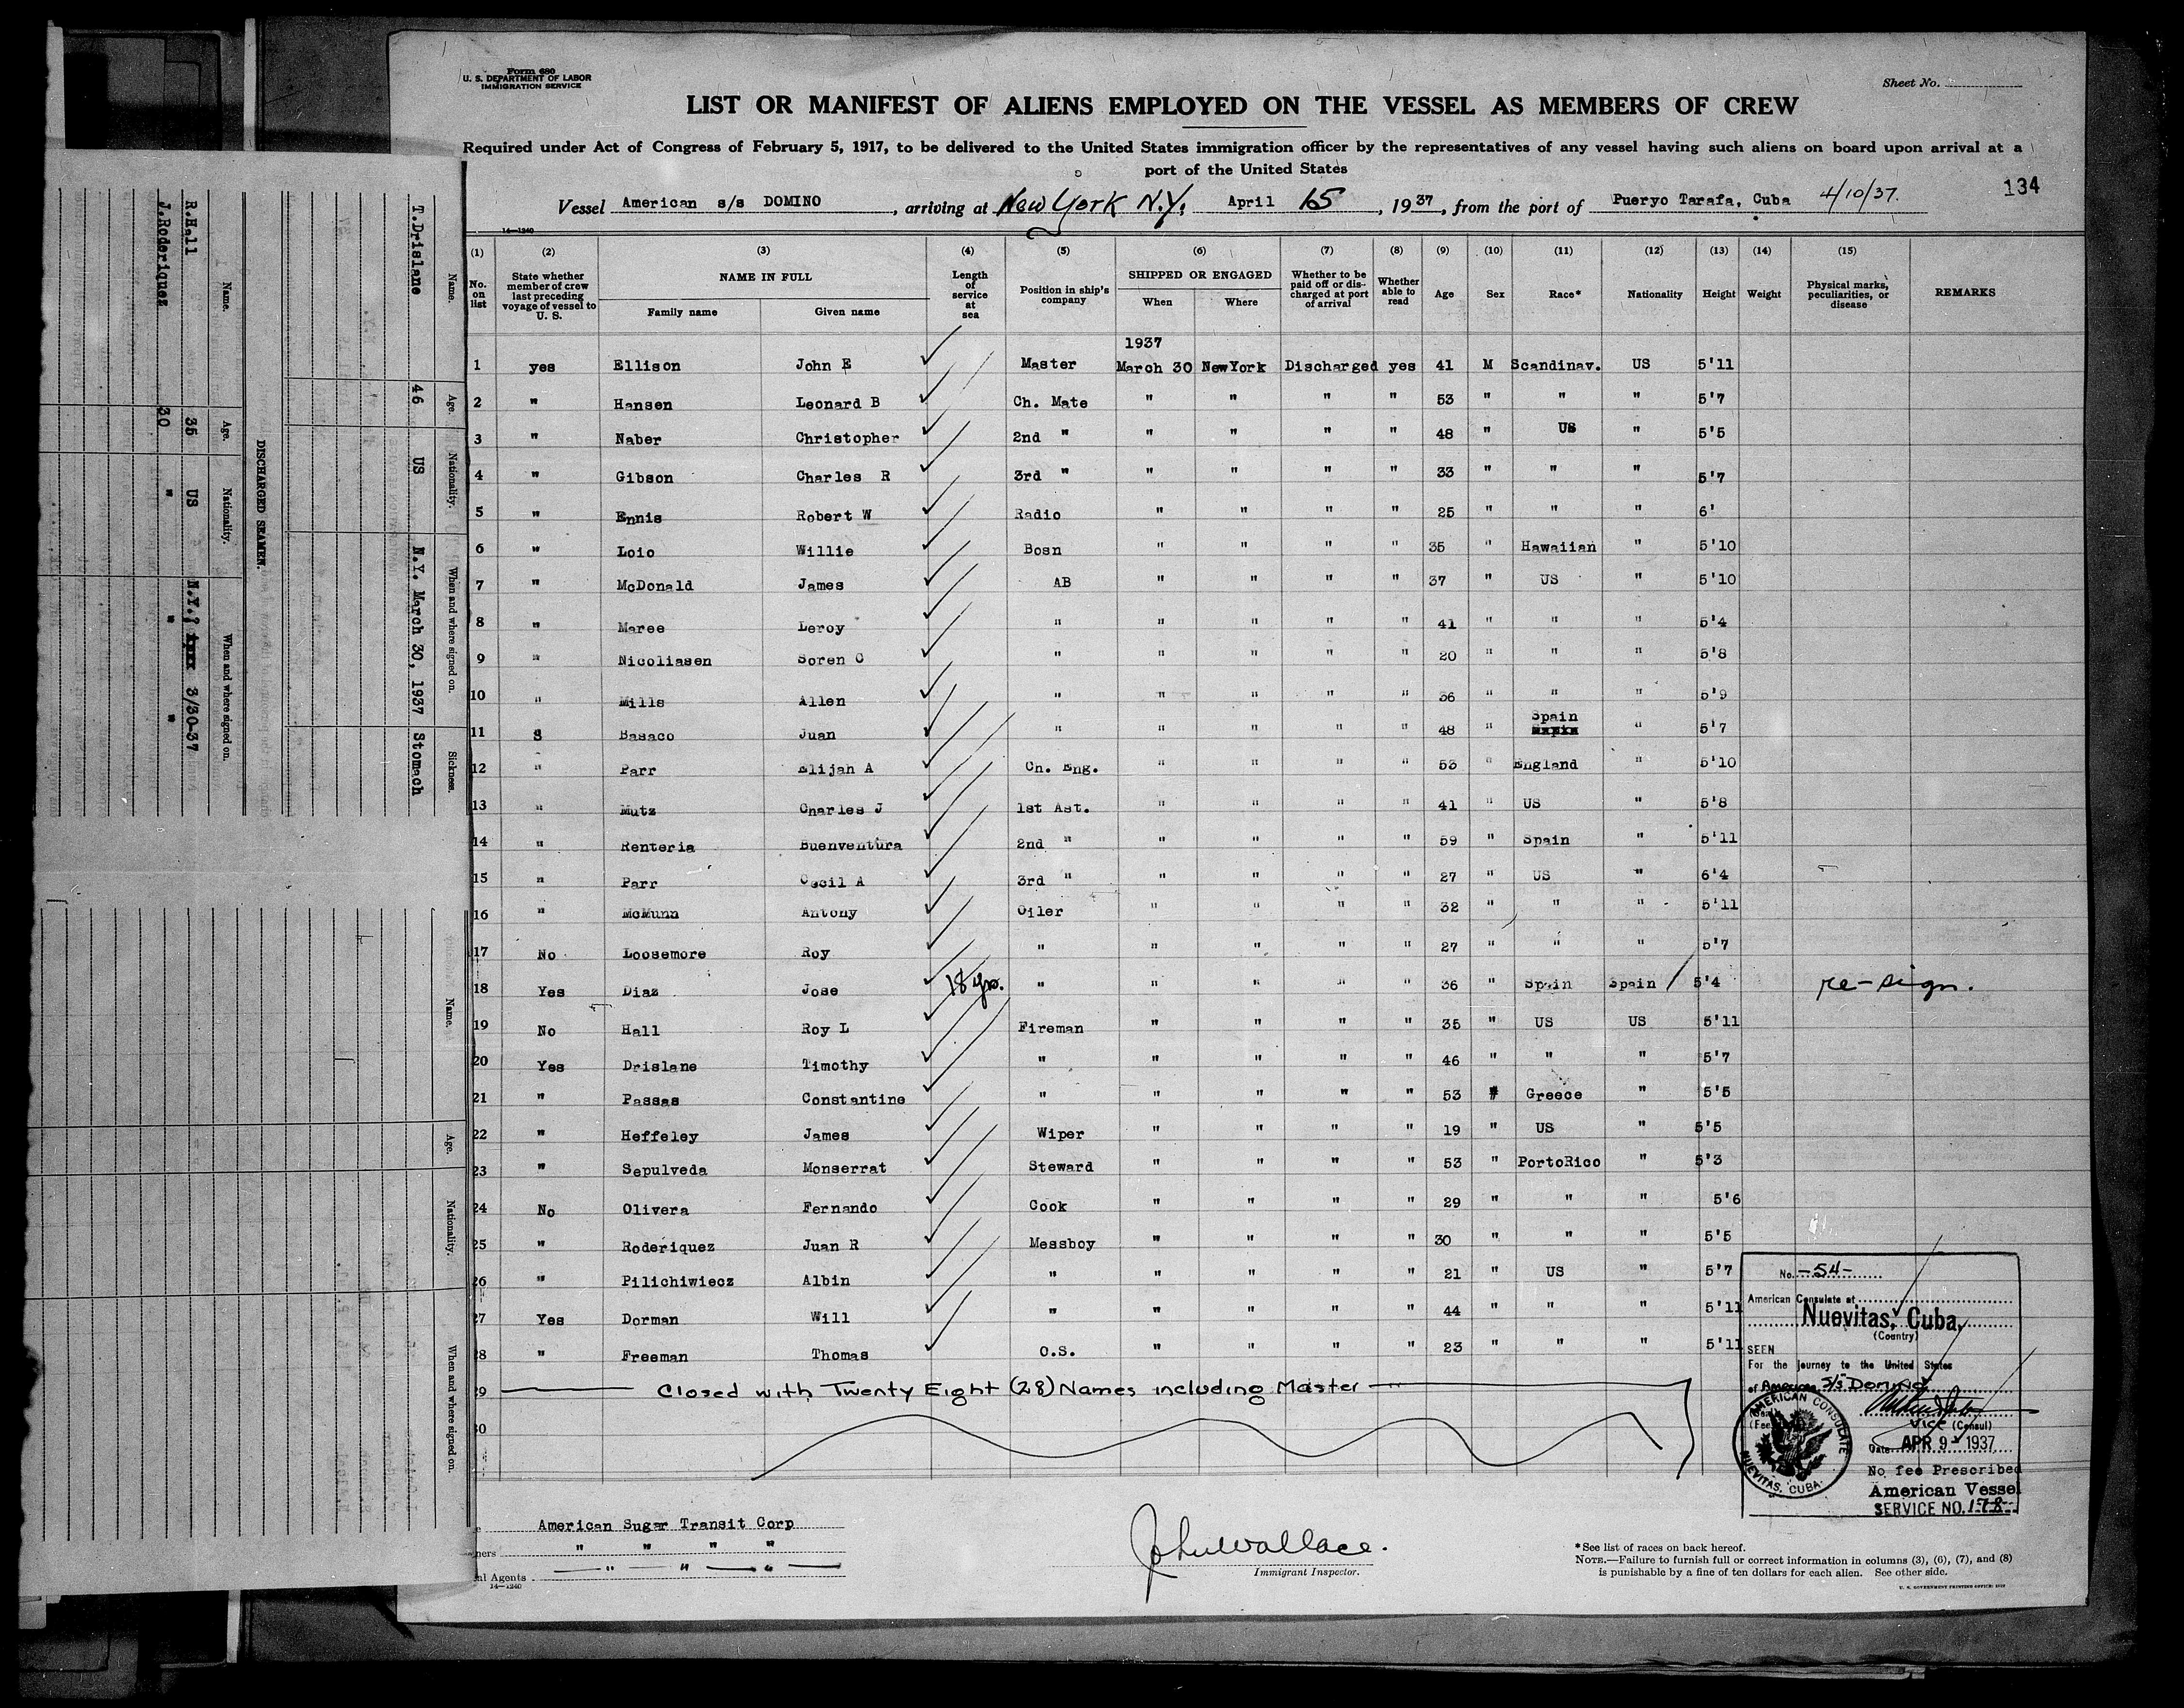 Form 680
U. S. DEPARTMENT OF LABOR
IMMIGRATION SERVICE
Sheet No.
LIST OR MANIFEST OF ALIENS EMPLOYED ON THE VESSEL AS MEMBERS OF CREW
Required under Act of Congress of February 5, 1917, to be delivered to the United States immigration officer by the representatives of any vessel having such aliens on board upon arrival at a
port of the United States
134
Vessel American s/s DOMINO, arriving at New York N.Y., April 15, 1937, from the port of Pueryo Tarafa, Cuba 4/10/37.
14—1240
(1) (2) (3) (4) (5) (6) (7) (8) (9) (10) (11) (12) (13) (14) (15)
No. on list State whether member of crew last preceding voyage of vessel to U. S. NAME IN FULL Family name Given name Length of service at sea Position in ship's company SHIPPED OR ENGAGED When Where Whether to be paid off or discharged at port of arrival Whether able to read Age Sex Race* Nationality Height Weight Physical marks, peculiarities, or disease REMARKS
1937
1 yes Ellison John E Master March 30 NewYork Discharged yes 41 M Scandinav. US 5'11
2 " Hansen Leonard B Ch. Mate " " " " 53 " " " 5'7
3 " Naber Christopher 2nd " " " " " 48 " US " 5'5
4 " Gibson Charles R 3rd " " " " " 33 " " " 5'7
5 " Ennis Robert W Radio " " " " 25 " " " 6'
6 " Loio Willie Bosn " " " " 35 " Hawaiian " 5'10
7 " McDonald James AB " " " " 37 " US " 5'10
8 " Maree Leroy " " " " " 41 " " " 5'4
9 " Nicoliasen Soren C " " " " " 20 " " " 5'8
10 " Mills Allen " " " " " 36 " " " 5'9
11 S Basaco Juan " " " " " 48 " Spain " 5'7
12 " Parr Elijah A Ch. Eng. " " " " 53 " England " 5'10
13 " Mutz Charles J 1st Ast. " " " " 41 " US " 5'8
14 " Renteria Buenventura 2nd " " " " " 59 " Spain " 5'11
15 " Parr Cecil A 3rd " " " " " 27 " US " 6'4
16 " McMunn Antony Oiler " " " " 32 " " " 5'11
17 No Loosemore Roy " " " " " 27 " " " 5'7
18 Yes Diaz Jose 18 yrs. " " " " " 36 " Spain Spain 5'4 re-sign.
19 No Hall Roy L Fireman " " " " 35 " US US 5'11
20 Yes Drislane Timothy " " " " " 46 " " " 5'7
21 " Passas Constantine " " " " " 53 " Greece " 5'5
22 " Heffeley James Wiper " " " " 19 " US " 5'5
23 " Sepulveda Monserrat Steward " " " " 53 " PortoRico " 5'3
24 No Olivera Fernando Cook " " " " 29 " " " 5'6
25 " Roderiquez Juan R Messboy " " " " 30 " " " 5'5
26 " Pilichiwiecz Albin " " " " " 21 " US " 5'7
27 Yes Dorman Will " " " " " 44 " " " 5'11
28 " Freeman Thomas O.S. " " " " 23 " " " 5'11
29 Closed with Twenty Eight (28) Names including Master
30
No. -54-
American Consulate at
Nuevitas, Cuba,
(Country)
SEEN
For the journey to the United States
of American S/S Domino
Vice (Consul)
Date APR 9 - 1937
No fee Prescribed
American Vessel
SERVICE NO. 178
AMERICAN CONSULATE
NUEVITAS, CUBA.
American Sugar Transit Corp
" " " "
" " "
14—1240
John Wallace.
Immigrant Inspector.
*See list of races on back hereof.
NOTE.—Failure to furnish full or correct information in columns (3), (6), (7), and (8)
is punishable by a fine of ten dollars for each alien. See other side.
U. S. GOVERNMENT PRINTING OFFICE
Name. Age. Nationality. When and where signed on. Sickness.
T.Drislane 46 US N.Y. March 30, 1937 Stomach
DISCHARGED SEAMEN.
Name. Age. Nationality. When and where signed on.
R.Hall 35 US N.Y. 3/30-37
J.Roderiquez 30 " " "
Name. Age. Nationality. When and where signed on.